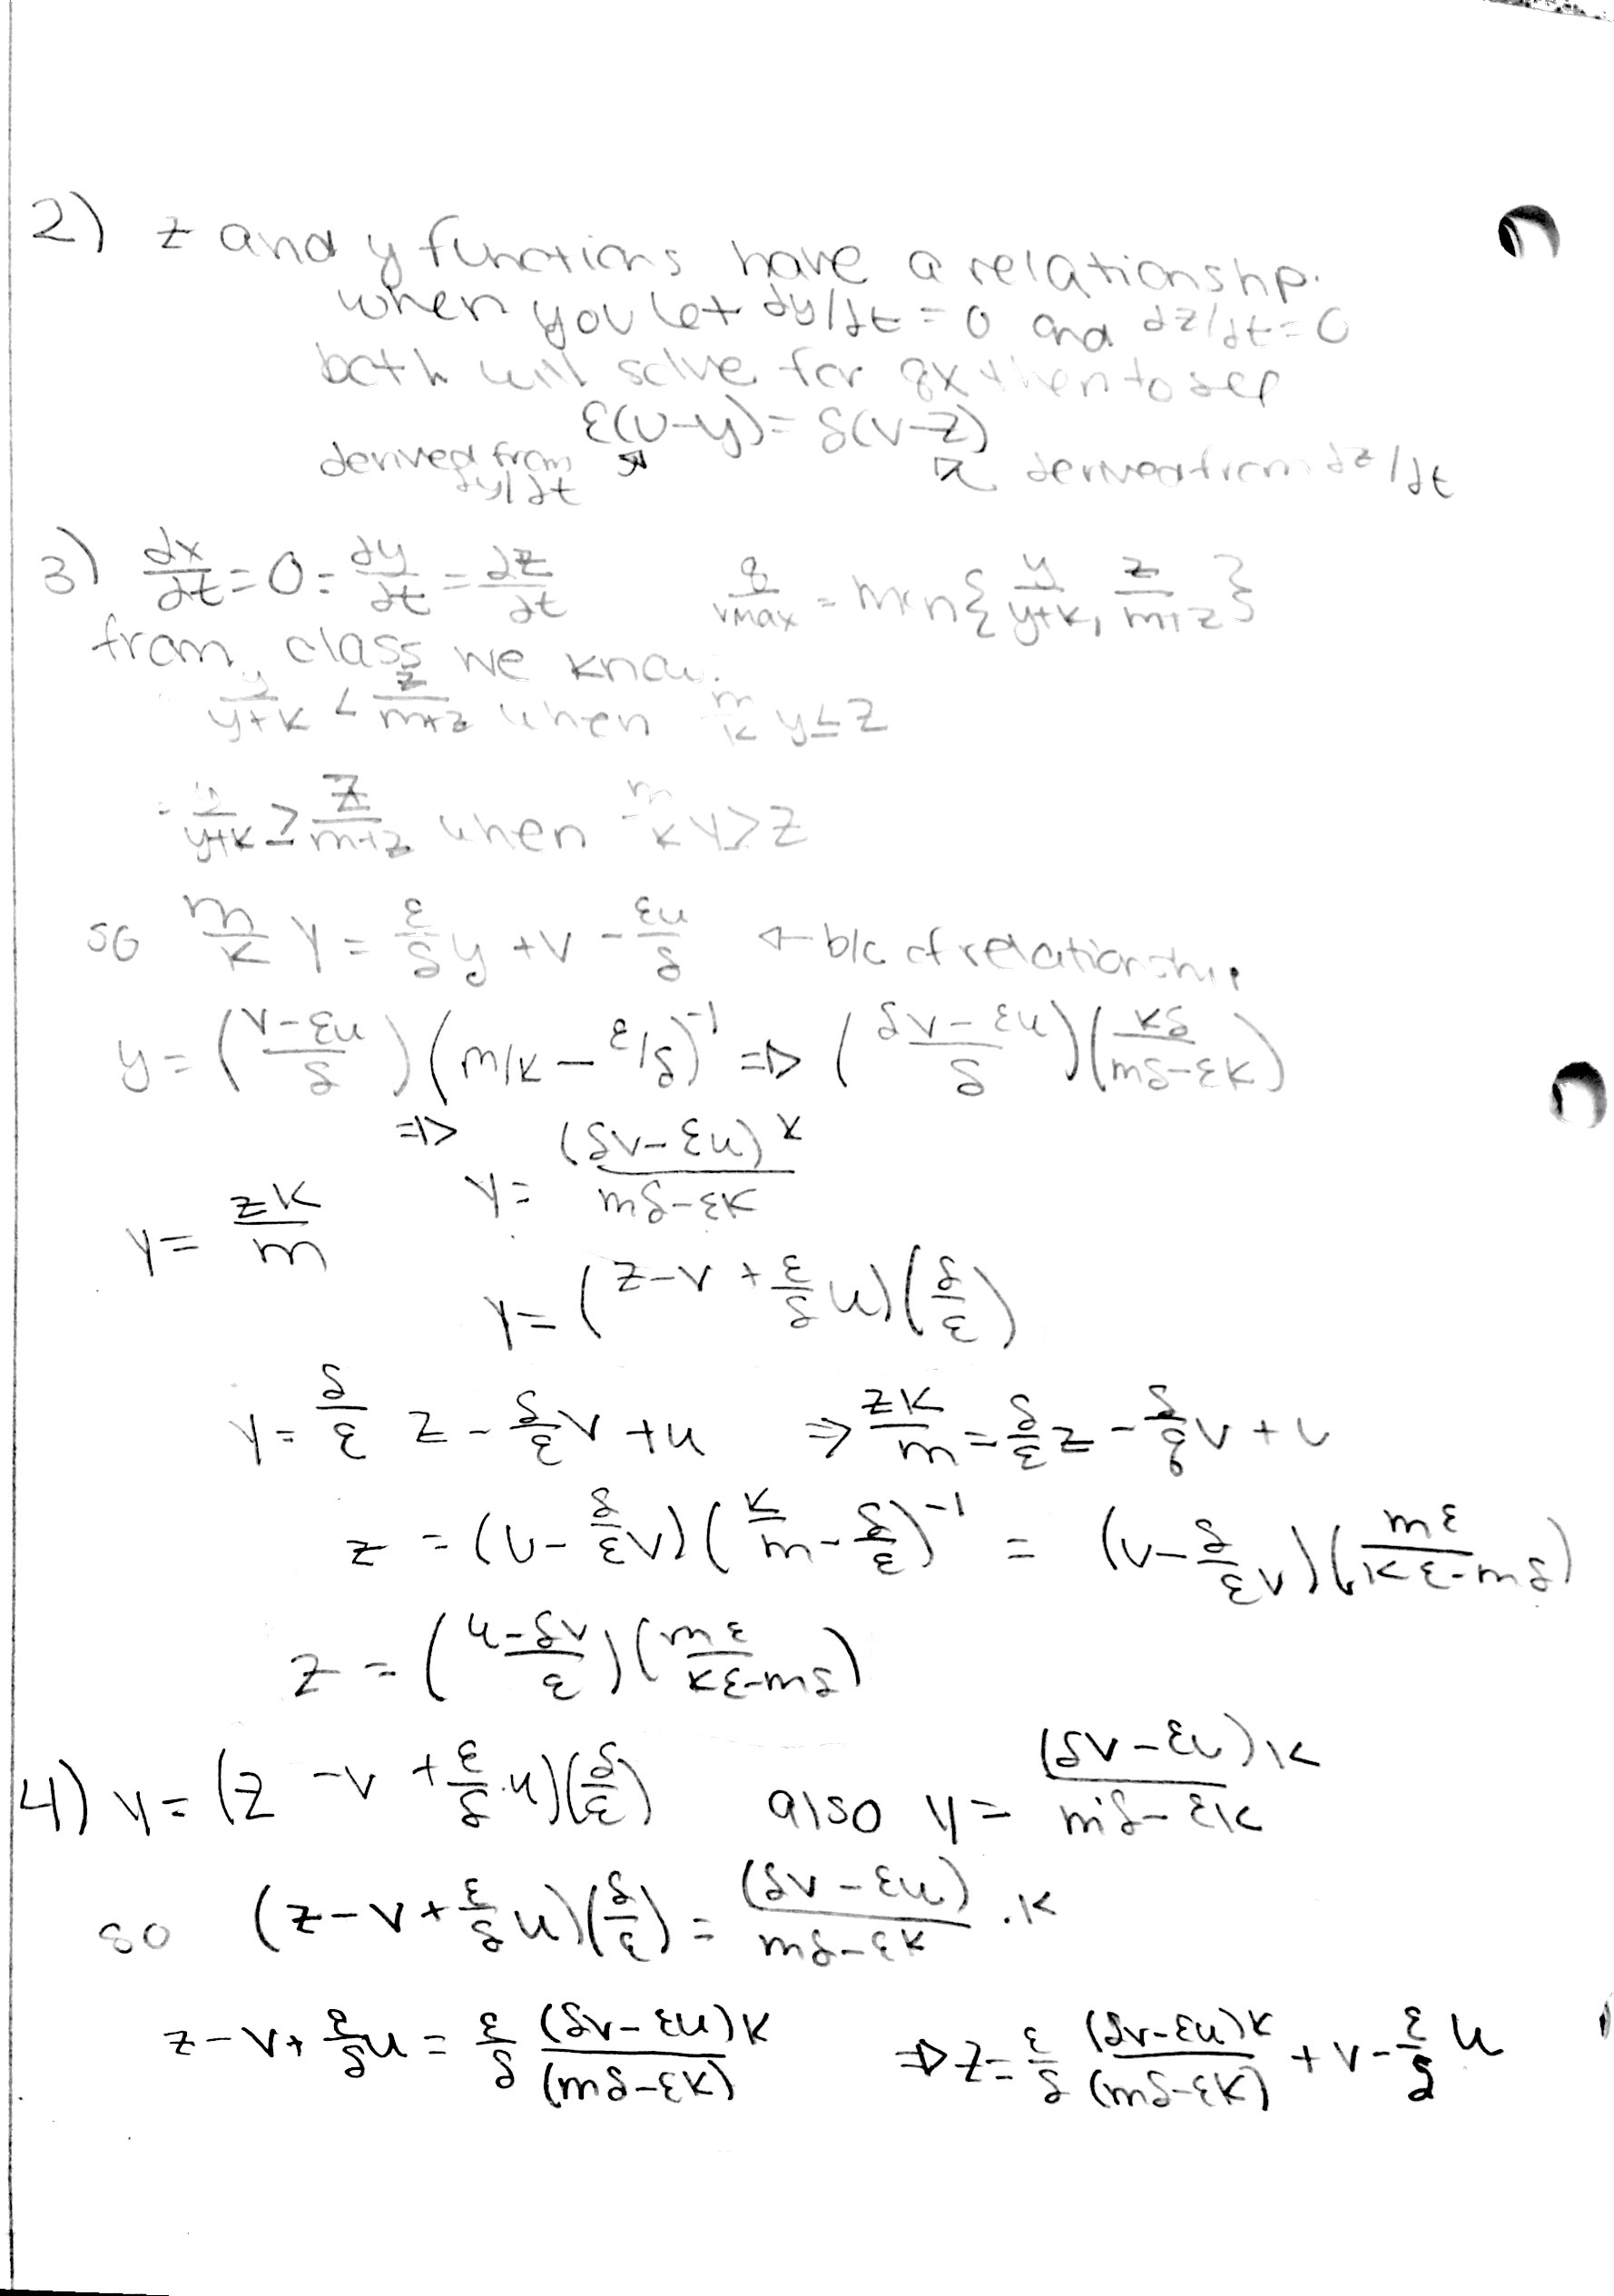 2) z and y functions have a relationship.
when you let dy/dt = 0 and dz/dt = 0
both will solve for gx then to see
ε(u-y) = δ(v-z)
derived from dy/dt ↗ ↖ derived from dz/dt
3) dx/dt = 0 = dy/dt = dz/dt g/vmax = min{y/(y+k), z/(m+z)}
from class we know.
y/(y+k) < z/(m+z) when m/k y ≤ z
- y/(y+k) ≥ z/(m+z) when m/k y > z
so m/k y = ε/δ y + v - εu/δ ← b/c of relationship
y = ((v-εu)/δ)(m/k - ε/δ)^-1 => ((δv-εu)/δ)(kδ/(mδ-εk))
=> y = (δv-εu)k/(mδ-εk)
y = zk/m
y = (z-v+ε/δ u)(δ/ε)
y = δ/ε z - δ/ε v + u => zk/m = δ/ε z - δ/ε v + u
z = (u - δ/ε v)(k/m - δ/ε)^-1 = (u - δ/ε v)(mε/(kε-mδ))
z = ((u-δv)/ε)(mε/(kε-mδ))
4) y = (z - v + ε/δ · u)(δ/ε) also y = (δv-εu)k/(mδ-εk)
so (z-v+ε/δ u)(δ/ε) = (δv-εu)/(mδ-εk) · k
z-v+ε/δ u = ε/δ (δv-εu)k/(mδ-εk) => z = ε/δ (δv-εu)k/(mδ-εk) + v - ε/δ u